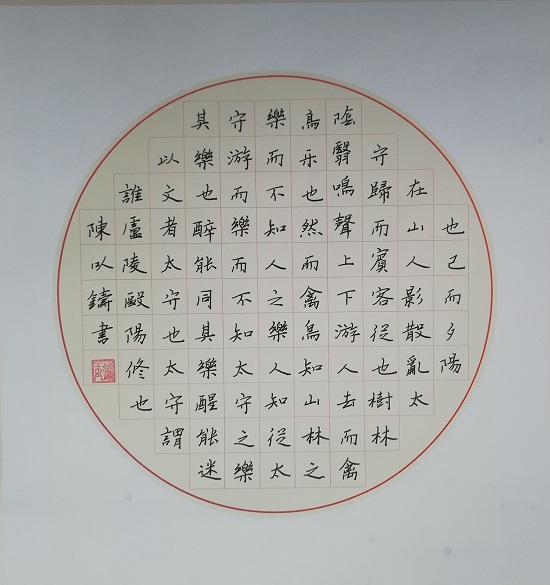 也已而夕陽
在山人影散亂太
守歸而賓客從也樹林
陰翳鳴聲上下游人去而禽
鳥乐也然而禽鳥知山林之
樂而不知人之樂人知從太
守游而樂而不知太守之樂
其樂也醉能同其樂醒能述
以文者太守也太守謂
誰廬陵毆陽修也
陳以鑄書